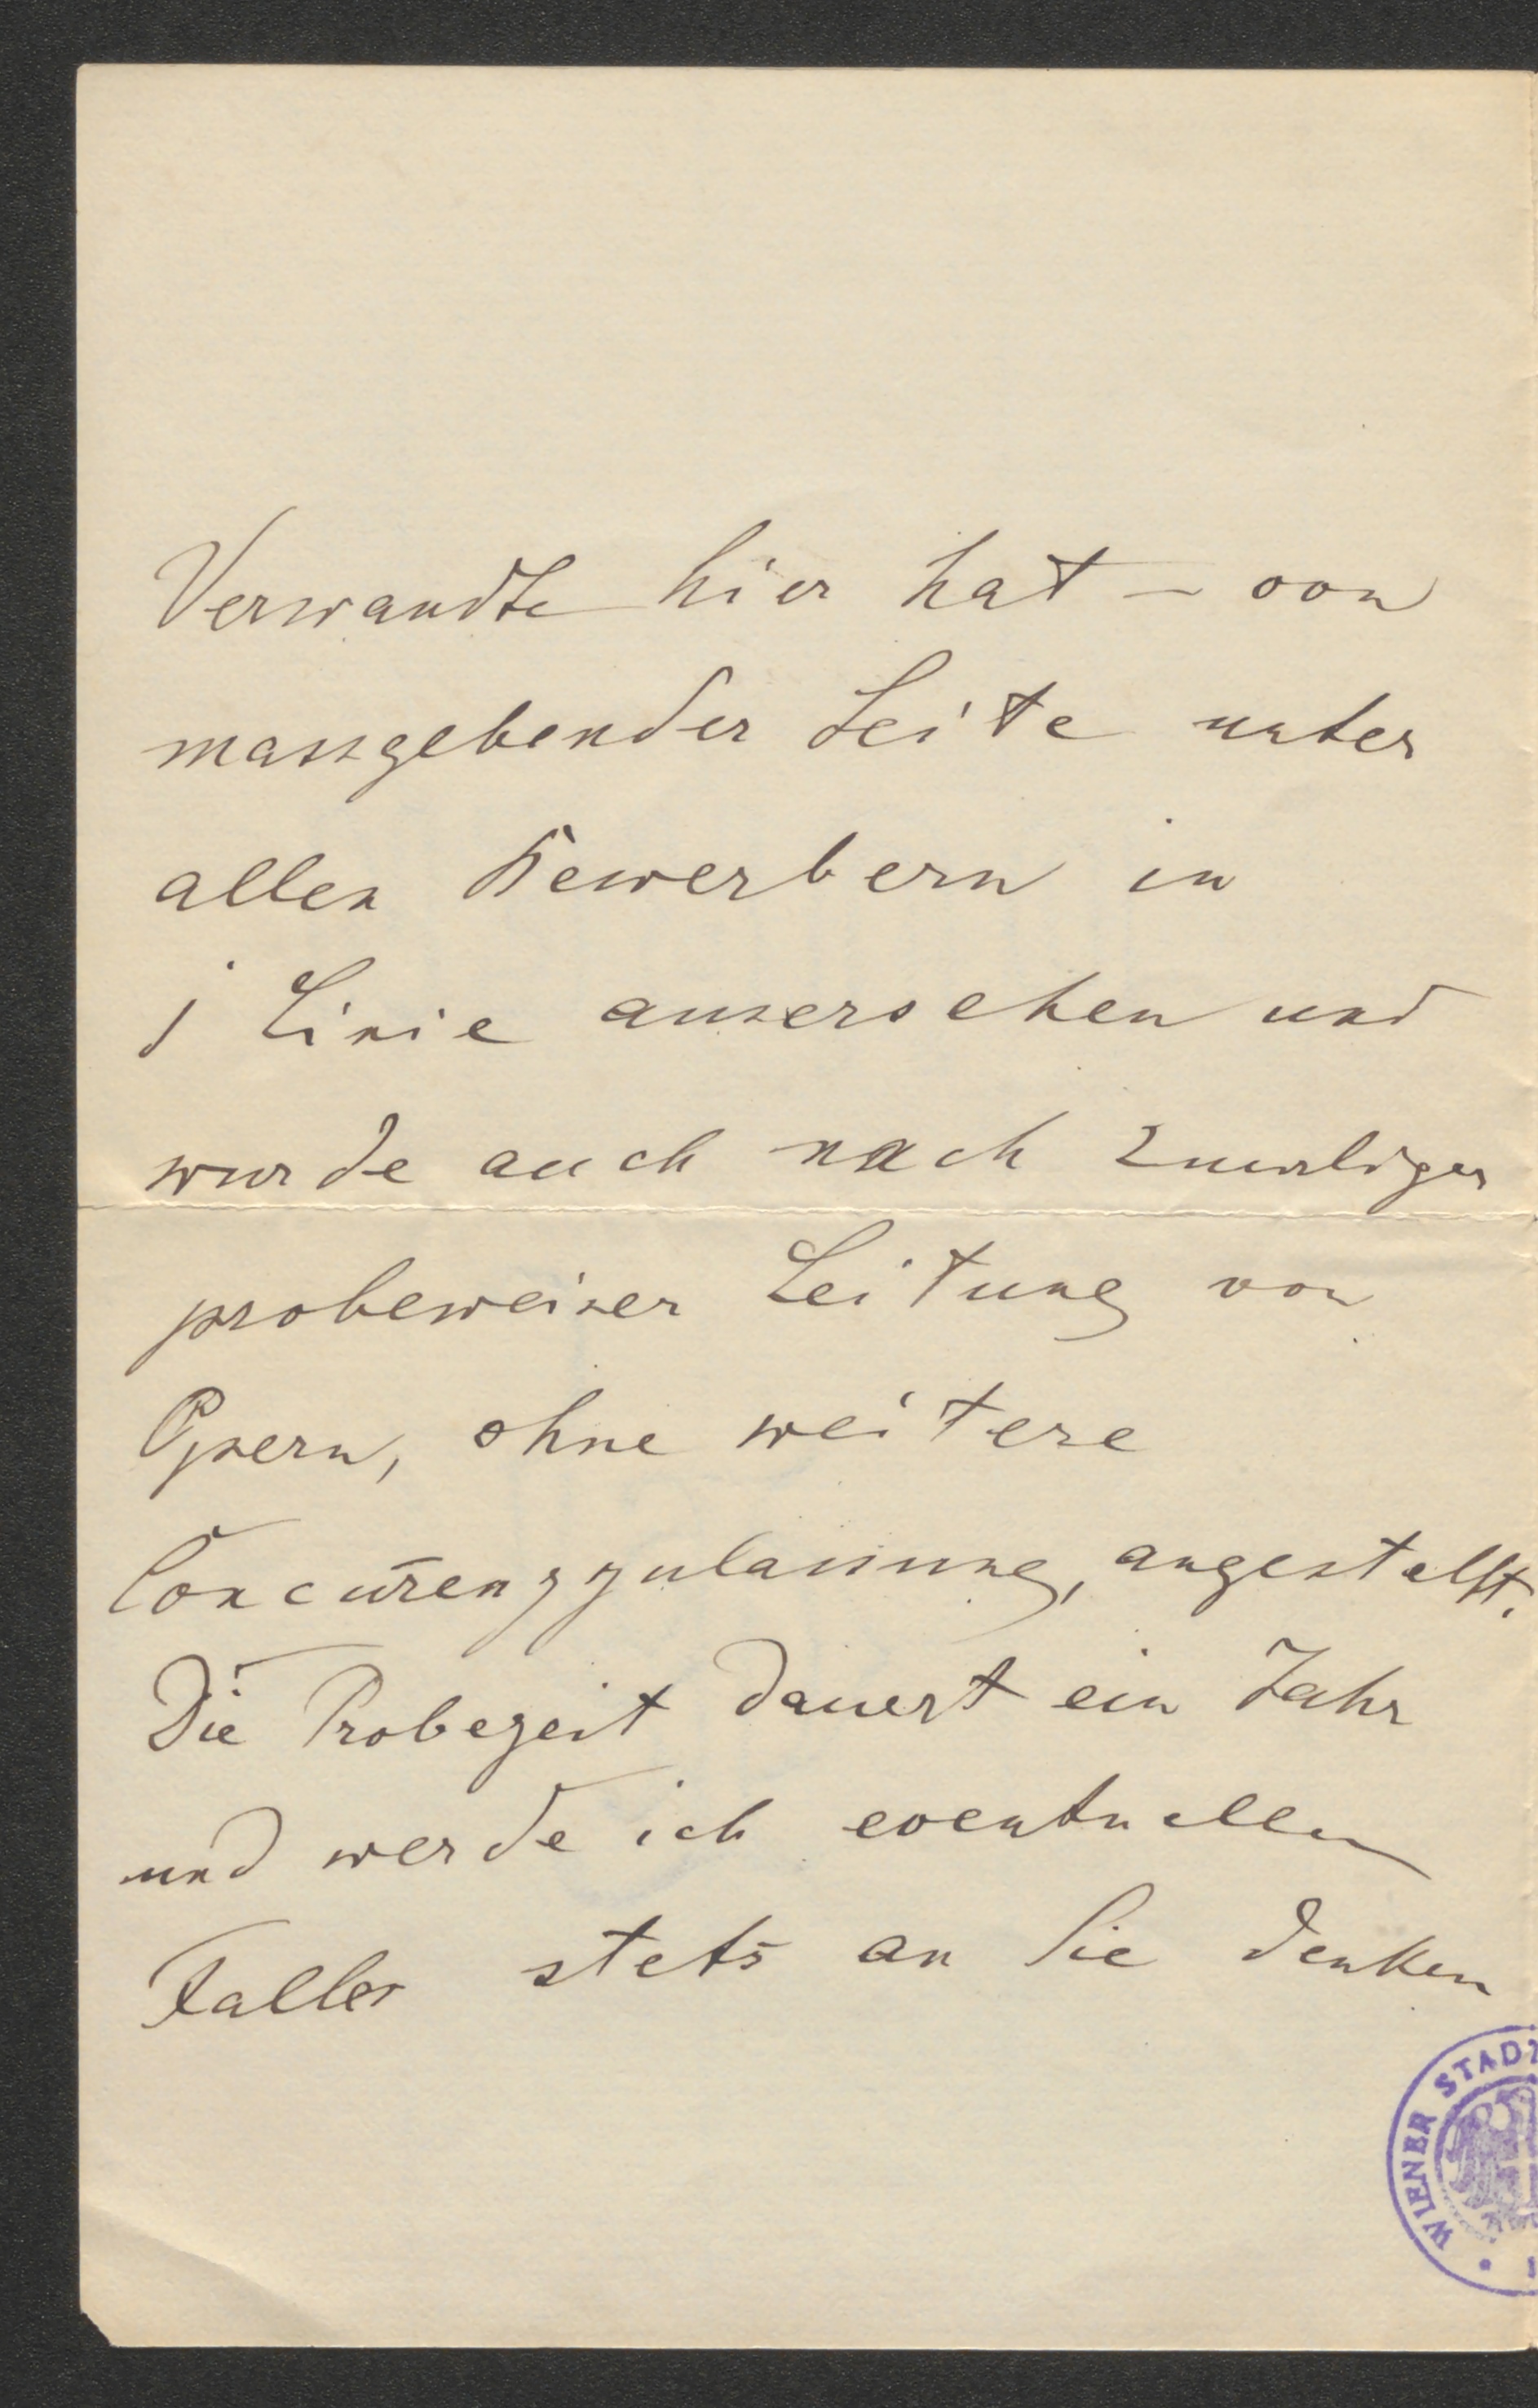 Verwandte hier hat – von
massgebender Seite unter
allen Bewerbern in
1 Linie ausersehen und
wurde auch nach 2maliger
probeweiser Leitung von
Opern, ohne weitere
Concur̄enzzulassung, angestellt.
Die Probezeit dauert ein Jahr
und werde ich eventuellen
Falles stets an Sie denken
WIENER STADT